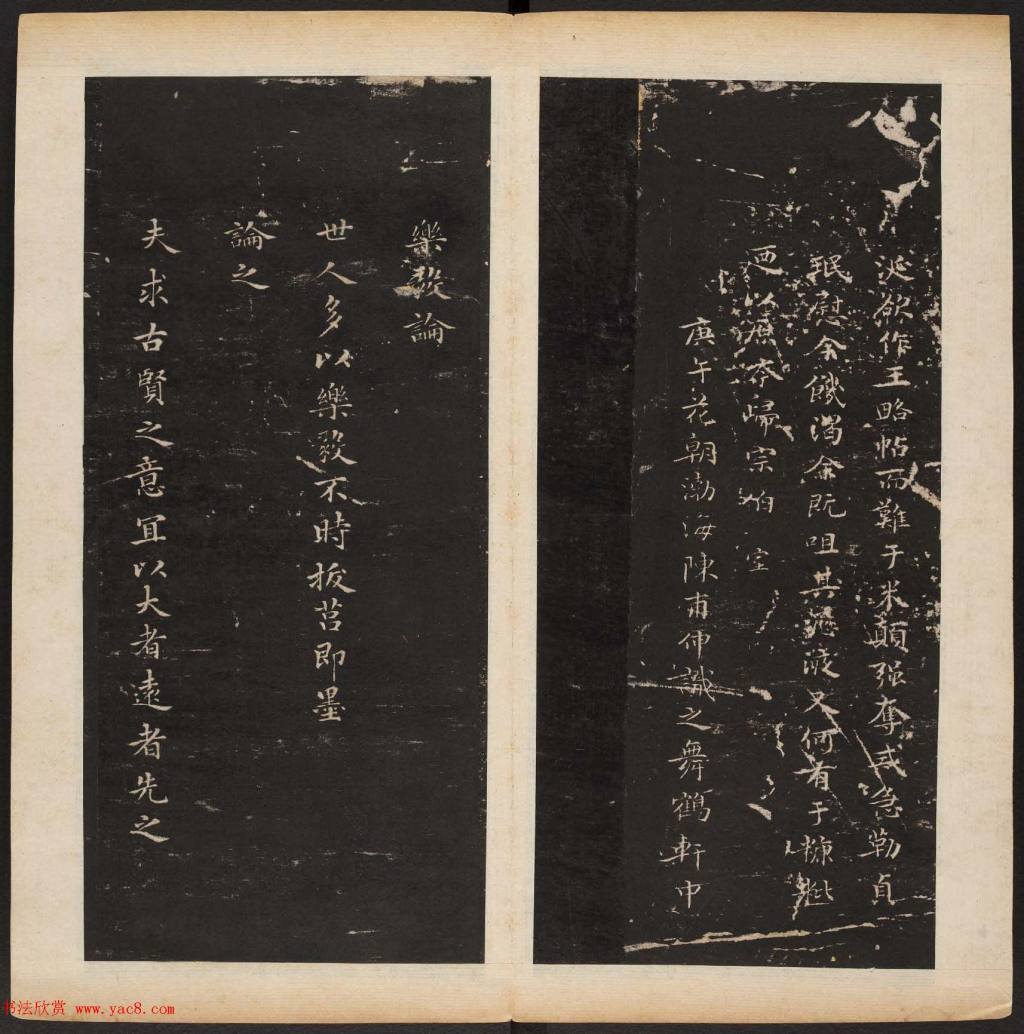 涎欲作王略帖而難于米顛强奪或急勒貞
珉慰余饑渴余既咀其滋液又何有于糠粃
廼以原本歸宗伯室
庚午花朝渤海陳甫伸識之舞鶴軒中
樂毅論
世人多以樂毅不時拔莒即墨
論之
夫求古賢之意冝以大者遠者先之
书法欣赏 www.yac8.com